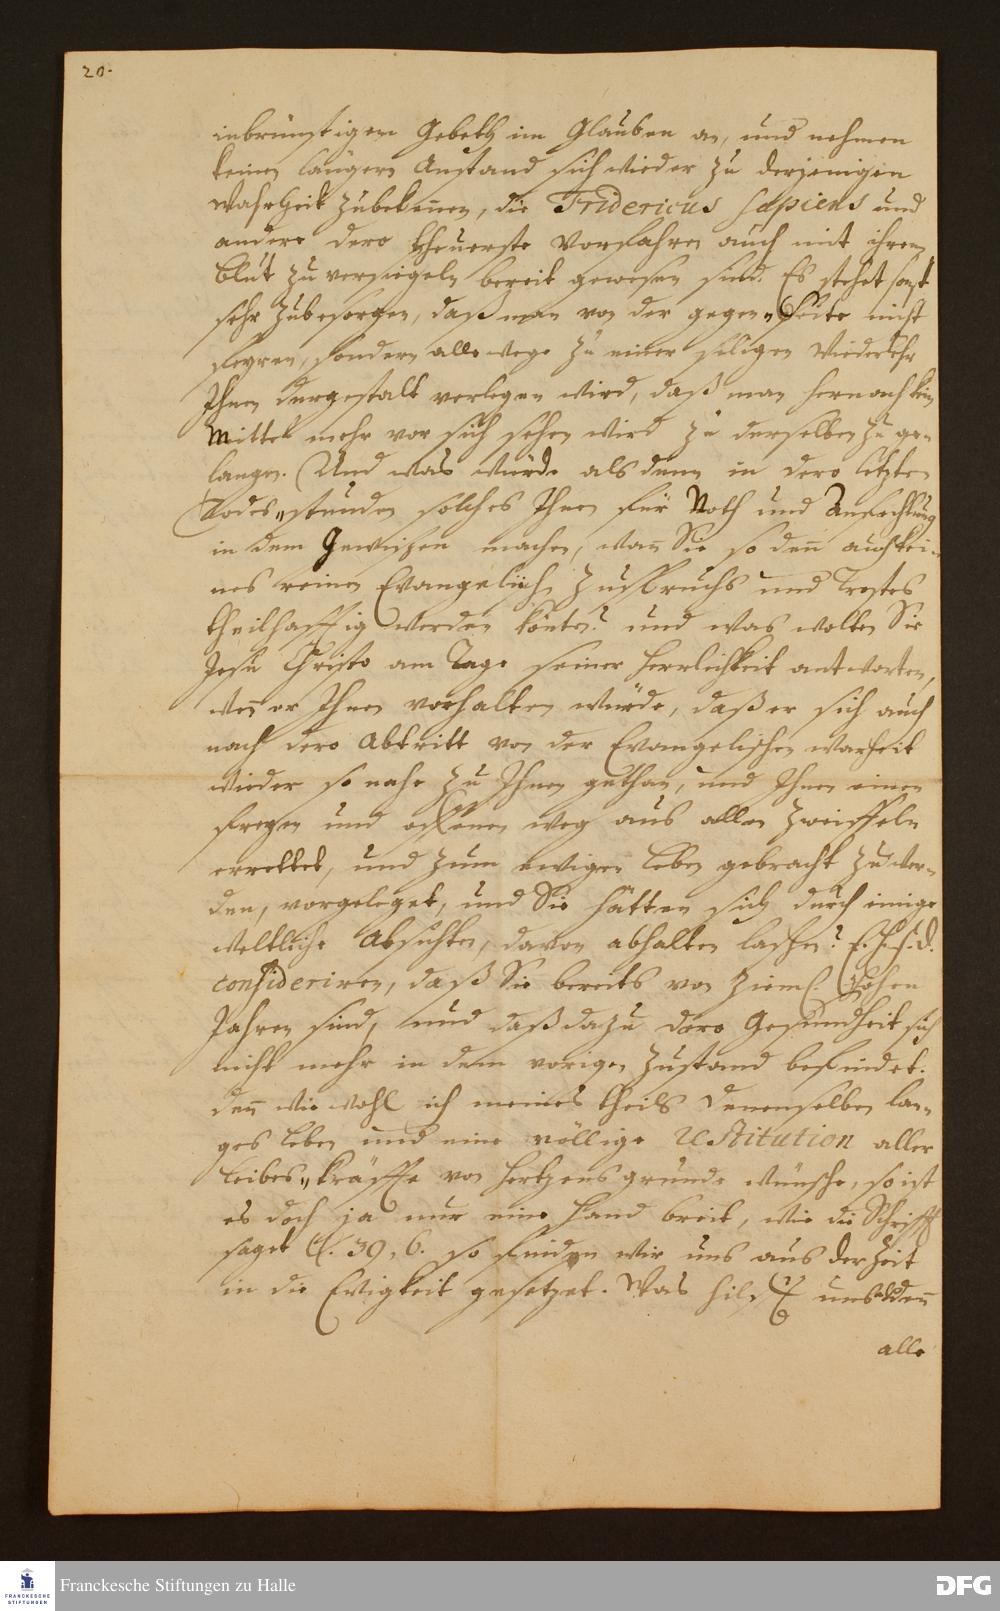 20.
inbrünstigem Gebeth im Glauben an, und nehmen
keinen längern Anstand sich wieder zu derjenigen
Wahrheit zubekennen, die Fridericus Sapiens und
andere dero theuerste Vorfahren auch mit ihrem
Blut zu versiegeln bereit gewesen sind. Es stehet sonst
sehr zubesorgen, daß man von der gegen„Seite nicht
feyren, sondern alle wege zu einer seligen Wiederkehr
Ihnen dergestalt verlegen wird, daß man hernach kein
Mittel mehr vor sich sehen wird zu derselben zu ge-
langen. Und was würde als denn in dero letzten
Todes„stunden solches Ihnen für Noth und Anfechtung
in dem Gewißen machen, wañ Sie so deñ auch kei-
nes reinen Evangelisch. Zuspruchs und Trostes
theilhafftig werden könten? und was wolten Sie
Jesu Christo am Tage seiner Herrlichkeit antworten,
weñ er Ihnen vorhalten würde, daß er sich auch
nach dero Abtritt von der Evangelischen warheit
wieder so nahe zu Ihnen gethan, und Ihnen einen
freyen und offenen weg aus allen Zweiffeln
errettet, und zum ewigen leben gebracht zu wer-
den, vorgeleget, und Sie hätten sich durch einige
weltliche Absichten, davon abhalten lassen? E. H. F. D.
consideriren, daß Sie bereits von ziemL. hohen
Jahren sind, und daß dazu dero Gesundheit sich
nicht mehr in dem vorigen Zustand befindet.
deñ wie wohl ich meines theils Denenselben lan-
ges leben und eine völlige restitution aller
leibes„kräffte von Hertzens grunde wünsche, so ist
es doch ja nur eine Hand breit, wie die Schrifft
saget Ps. 39, 6. so finden wir uns aus der Zeit
in die Ewigkeit gesetzet. Was hilfft uns deñ
alle
Franckesche Stiftungen zu Halle
FRANCKESCHE
STIFTUNGEN
DFG